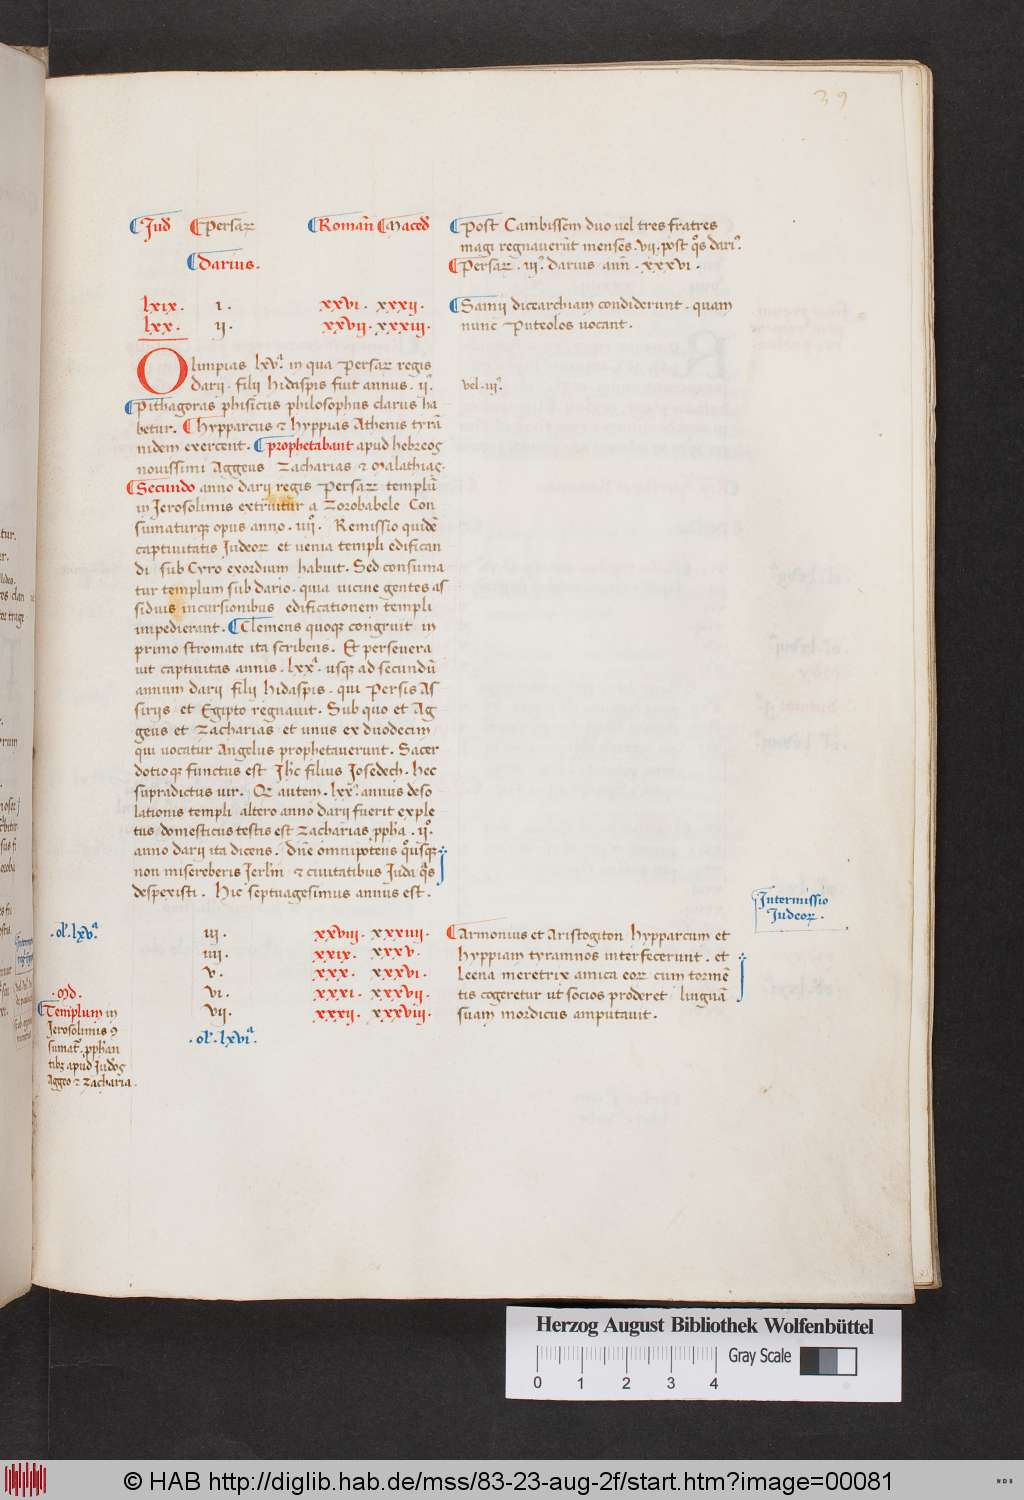 39
Jud Persaꝝ Roman̄ Maced
Darius.
Post Cambissem duo uel tres fratres
magi regnauerūt menses. vii. post qͦs dariꝰ.
Persaꝝ. iiiꝰ. darius ann̄. xxxvi.
lxix. i. xxvi. xxxii.
lxx. ii. xxvii. xxxiii.
Samii dicearchiam condiderunt. quam
nunc Puteolos uocant.
Olimpias lxvͣ. in qua Persaꝝ regis
darii. filii hidaspis fuit annus. iiꝰ.
vel. iiiꝰ.
Pithagoras phisicus philosophus clarus ha
betur. Hypparcus ⁊ hyppias Athenis tyrā
nidem exercent. prophetabant apud hebreos
nouissimi Aggeus Zacharias ⁊ Malachias.
Secundo anno darii regis Persaꝝ templū
in Jerosolimis extruitur a Zorobabele Con
sumaturqꝫ opus anno. iiiiͦ. Remissio quidē
captiuitatis Iudeoꝝ et uenia templi edifican
di sub Cyro exordium habuit. Sed consuma
tur templum sub dario. quia uicine gentes as
siduis incursionibus edificationem templi
impedierant. Clemens quoqꝫ congruit in
primo stromate ita scribens. Et perseuera
uit captiuitas annis. lxxͣ. usqꝫ ad secundū
annum darii filii hidaspis. qui Persis As
siriis et Egipto regnauit. Sub quo et Ag
geus et Zacharias et unus ex duodecim
qui uocatur Angelus prophetauerunt. Sacer
dotioqꝫ functus est Jhc filius Josedech. hec
supradictus uir. Qꝫ autem. lxxꝰ. annus deso
lationis templi altero anno darii fuerit exple
tus domesticus testis est Zacharias ppha. iiͦ.
anno darii ita dicens. Dn̄e omnipotens qͦusqꝫ
non misereberis Jerlm̄ ⁊ ciuitatibus Iuda qͣs
despexisti. Hic septuagesimus annus est.
Intermissio
Judeoꝝ.
.ol'. lxvͣ.
iii. xxviii. xxxiiii.
iiii. xxix. xxxv.
v. xxx. xxxvi.
vi. xxxi. xxxvii.
vii. xxxii. xxxviii.
.ol'. lxviͣ.
Armonius et Aristogiton Hypparcum et
hyppiam tyramnos interfecerunt. et
leena meretrix amica eoꝝ cum tormē
tis cogeretur ut socios proderet linguā
suam mordicus amputauit.
Templum in
Jerosolimis ꝯ
sumat᷑. pphan
tibꝫ apud Iudos
Aggeo ⁊ Zacharia.
Herzog August Bibliothek Wolfenbüttel
Gray Scale
0 1 2 3 4
© HAB http://diglib.hab.de/mss/83-23-aug-2f/start.htm?image=00081